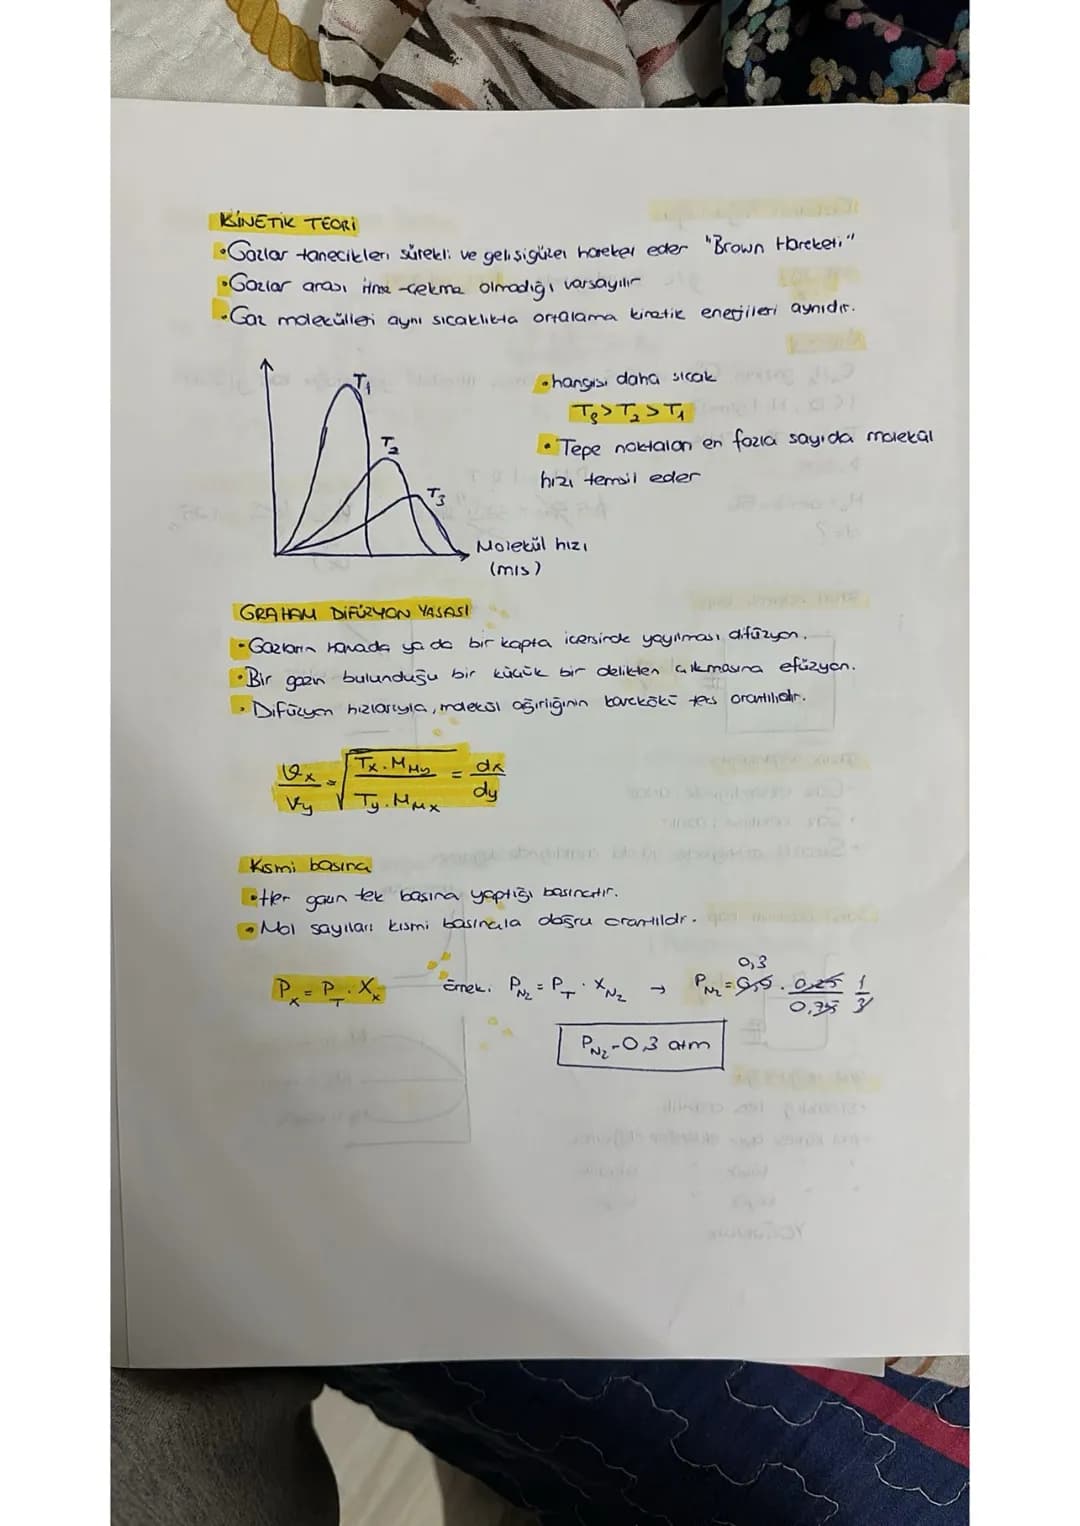 KİNETİK TEORİ
•Gazlar tanecikleri sürekli ve gelişigüzel hareket eder "Brown Hareketi"
•Gazlar arası itme-çekme olmadığı varsayılır
•Gaz molekülleri aynı sıcaklıkta ortalama kinetik enerjileri aynıdır.
T1
T2
T3
Molekül hızı
(m/s)
•hangisi daha sıcak
T3>T2>T1
•Tepe noktaları en fazla sayıda molekül
hızı temsil eder
GRAHAM DİFÜZYON YASASI
•Gazların havada ya da bir kapta içersinde yayılması difüzyon.
•Bir gazın bulunduğu bir küçük bir delikten çıkmasına efüzyon.
•Difüzyon hızlarıyla, molekül ağırlığının karekökü ters orantılıdır.
Vx/Vy = √(Tx.MMy/Ty.MMx) = dx/dy
Kısmi basınç
•Her gazın tek başına yaptığı basınçtır.
•Mol sayıları kısmi basınçla doğru orantılıdır.
Px = PT . Xx
Örnek: PN2 = PT . XN2 → PN2 = 0,9 . 0,25/0,75 1/3
0,3
PN2 = 0,3 atm